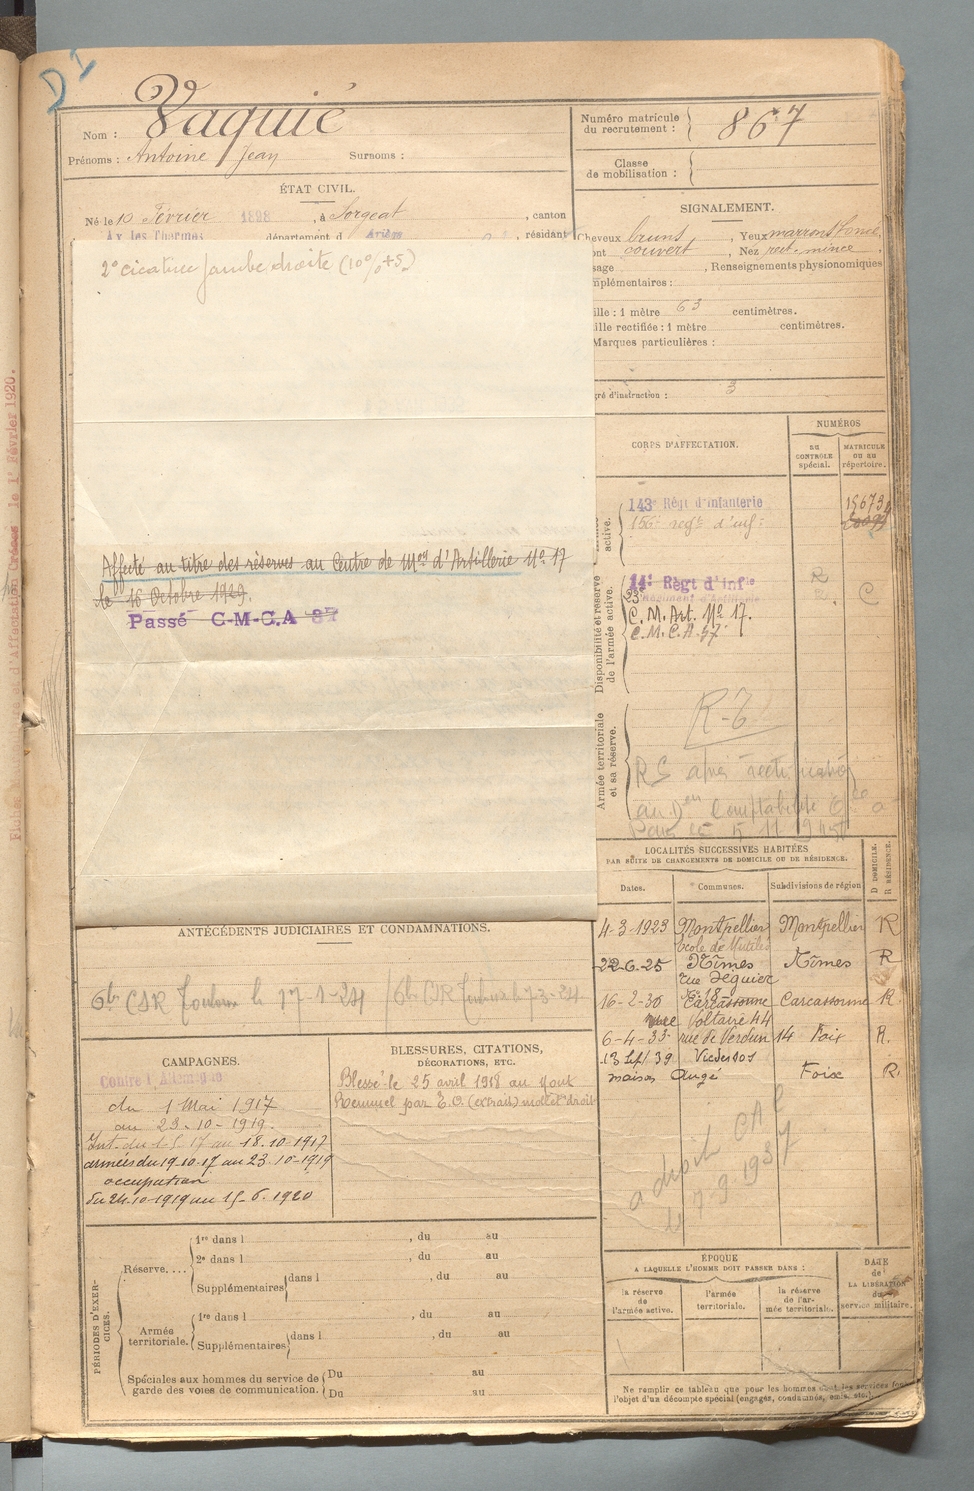 D 1
Nom : Vaquié
Prénoms : Antoine Jean Surnoms :
Numéro matricule du recrutement : 867
Classe de mobilisation :
ÉTAT CIVIL.
Né le 10 Février 1898, à Sorgeat, canton
Ax les Thermes département d Ariège, résidant
SIGNALEMENT.
Cheveux bruns, Yeux marrons foncé,
ont couvert, Nez rect. mince,
sage, Renseignements physionomiques
mplémentaires :
ille : 1 mètre 63 centimètres.
ille rectifiée : 1 mètre centimètres.
Marques particulières :
gré d'instruction : 3
2° cicatrice jambe droite (10% +5)
Affecté au titre des réserves au Centre de Mon d'Artillerie No 17
le 16 Octobre 1929.
Passé C-M-C.A 37
CORPS D'AFFECTATION.
NUMÉROS
au CONTRÔLE spécial.
MATRICULE ou au répertoire.
active.
143e Régt d'Infanterie
156e regt d'inf:
15673
Disponibilité et réserve de l'armée active.
14e Règt d'infie
23e
C. M. Art. No 17.
C. M. C. A. 37
C
Armée territoriale et sa réserve.
R-6
RS après rectification
LOCALITÉS SUCCESSIVES HABITÉES
PAR SUITE DE CHANGEMENTS DE DOMICILE OU DE RÉSIDENCE.
Dates. Communes. Subdivisions de région
D DOMICILE.
R RÉSIDENCE.
4-3-1923 Montpellier Montpellier R
école de Mutilés
22-6-25 Nîmes Nîmes R
rue Séguier
16-2-30 Carcassonne Carcassonne R.
rue Voltaire 44
6-4-33 rue de Verdun 14 Foix R.
13 Sept 39 Vicdessos
maison Augé Foix R.
a droit CAC
le 7.9.1937
ANTÉCÉDENTS JUDICIAIRES ET CONDAMNATIONS.
6e CSR Toulouse le 17-1-24 / 6e CSR Toulouse le 7-3-24
CAMPAGNES.
Contre l'Allemagne
du 1 Mai 1917
au 23-10-1919.
Int. du 1 5 17 au 18.10.1917
armées du 19.10.17 au 23.10.1919
occupation
du 24.10.1919 au 15.6.1920
BLESSURES, CITATIONS,
DÉCORATIONS, ETC.
Blessé le 25 avril 1918 au Mont
Kemmel par E.O. (extrait) mollet droit
PÉRIODES D'EXERCICES.
Réserve....
1re dans l , du au
2e dans l , du au
Supplémentaires dans l , du au
Armée territoriale.
1re dans l , du au
Supplémentaires dans l , du au
Spéciales aux hommes du service de garde des voies de communication.
Du au
Du au
ÉPOQUE
A LAQUELLE L'HOMME DOIT PASSER DANS :
la réserve de l'armée active.
l'armée territoriale.
la réserve de l'armée territoriale.
DATE de LA LIBÉRATION du service militaire.
Ne remplir ce tableau que pour les hommes dont les services font
l'objet d'un décompte spécial (engagés, condamnés, omis, etc.).
d'Affectation Créées le 1 Février 1920.